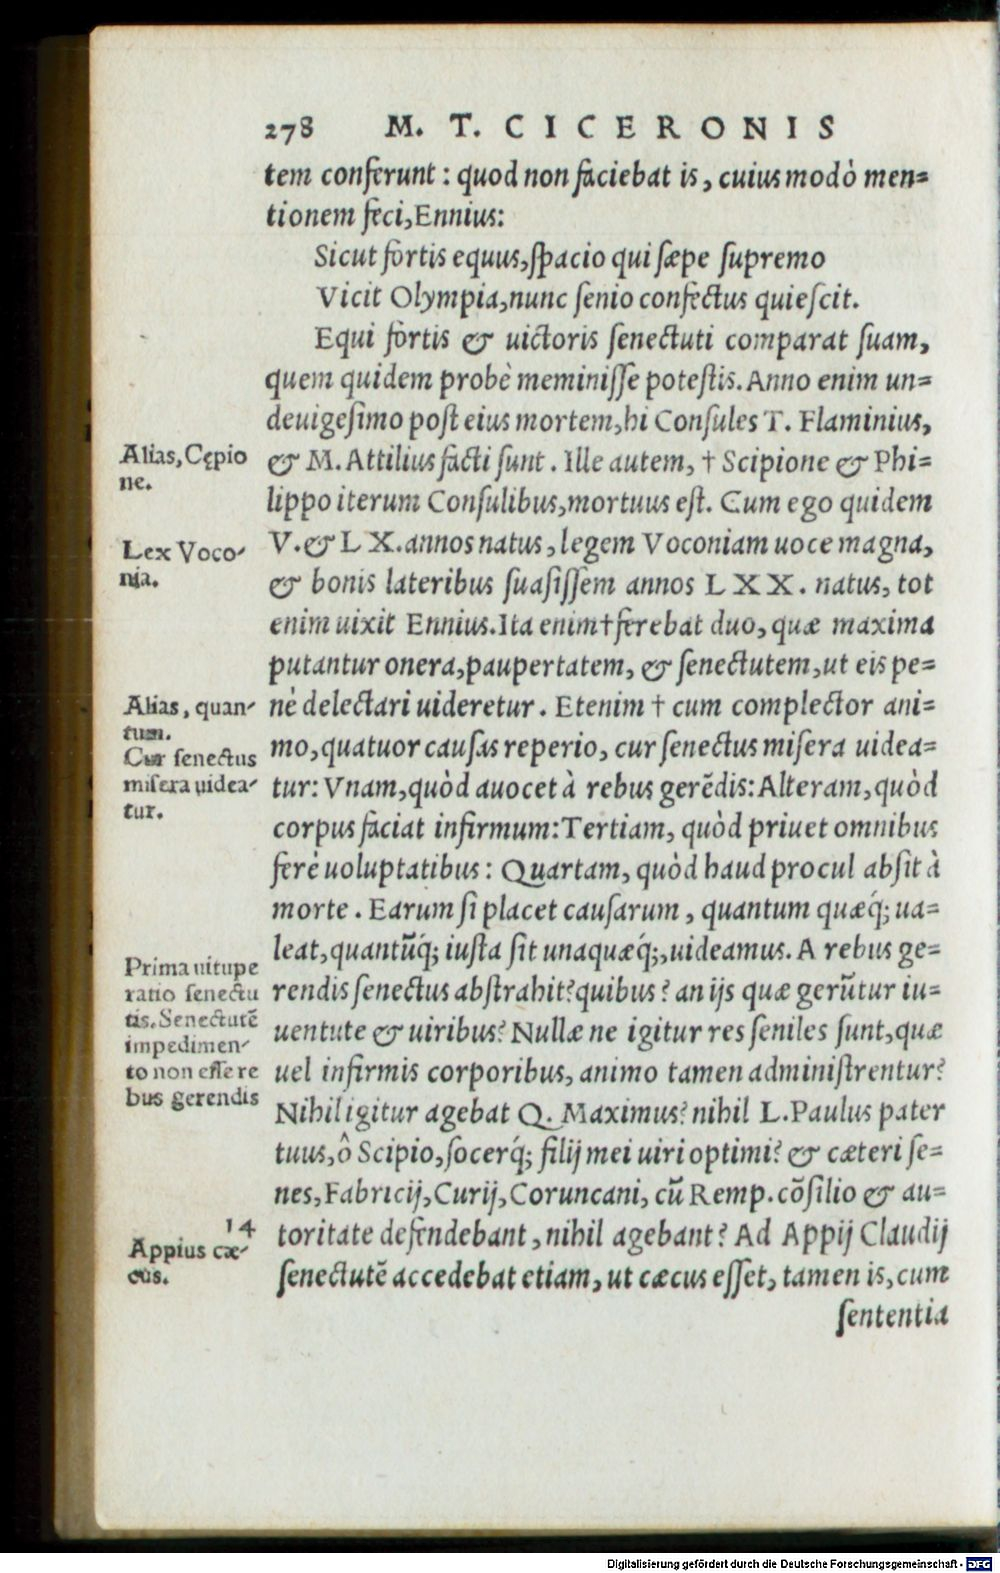 278 M. T. CICERONIS
tem conferunt: quod non faciebat is, cuius modò men=
tionem feci, Ennius:
Sicut fortis equus, spacio qui sæpe supremo
Vicit Olympia, nunc senio confectus quiescit.
Equi fortis & uictoris senectuti comparat suam,
quem quidem probè meminisse potestis. Anno enim un=
deuigesimo post eius mortem, hi Consules T. Flaminius,
& M. Attilius facti sunt. Ille autem, † Scipione & Phi=
lippo iterum Consulibus, mortuus est. Cum ego quidem
V. & LX. annos natus, legem Voconiam uoce magna,
& bonis lateribus suasissem annos LXX. natus, tot
enim uixit Ennius. Ita enim † ferebat duo, quæ maxima
putantur onera, paupertatem, & senectutem, ut eis pe=
nè delectari uideretur. Etenim † cum complector ani=
mo, quatuor causas reperio, cur senectus misera uidea=
tur: Vnam, quòd auocet à rebus gerẽdis: Alteram, quòd
corpus faciat infirmum: Tertiam, quòd priuet omnibus
ferè uoluptatibus: Quartam, quòd haud procul absit à
morte. Earum si placet causarum, quantum quæq́;ua=
leat, quantũq́; iusta sit unaquæq́;, uideamus. A rebus ge=
rendis senectus abstrahit? quibus? an ijs quæ gerũtur iu=
uentute & uiribus? Nullæ ne igitur res seniles sunt, quæ
uel infirmis corporibus, animo tamen administrentur?
Nihil igitur agebat Q. Maximus? nihil L. Paulus pater
tuus, ô Scipio, socerq́; filij mei uiri optimi? & cæteri se=
nes, Fabricij, Curij, Coruncani, cũ Remp. cõsilio & au=
toritate defendebant, nihil agebant? Ad Appij Claudij
senectutẽ accedebat etiam, ut cæcus esset, tamen is, cum
sententia
Alias, Cępio
ne.
Lex Voco-
nia.
Alias, quan-
tum.
Cur senectus
misera uidea-
tur.
Prima uitupe
ratio senectu
tis. Senectutẽ
impedimen-
to non esse re
bus gerendis
14
Appius cæ-
cus.
Digitalisierung gefördert durch die Deutsche Forschungsgemeinschaft - DFG